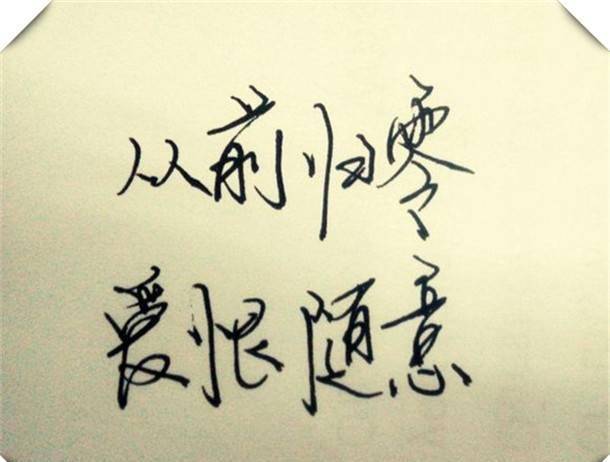 从前归零
爱恨随意